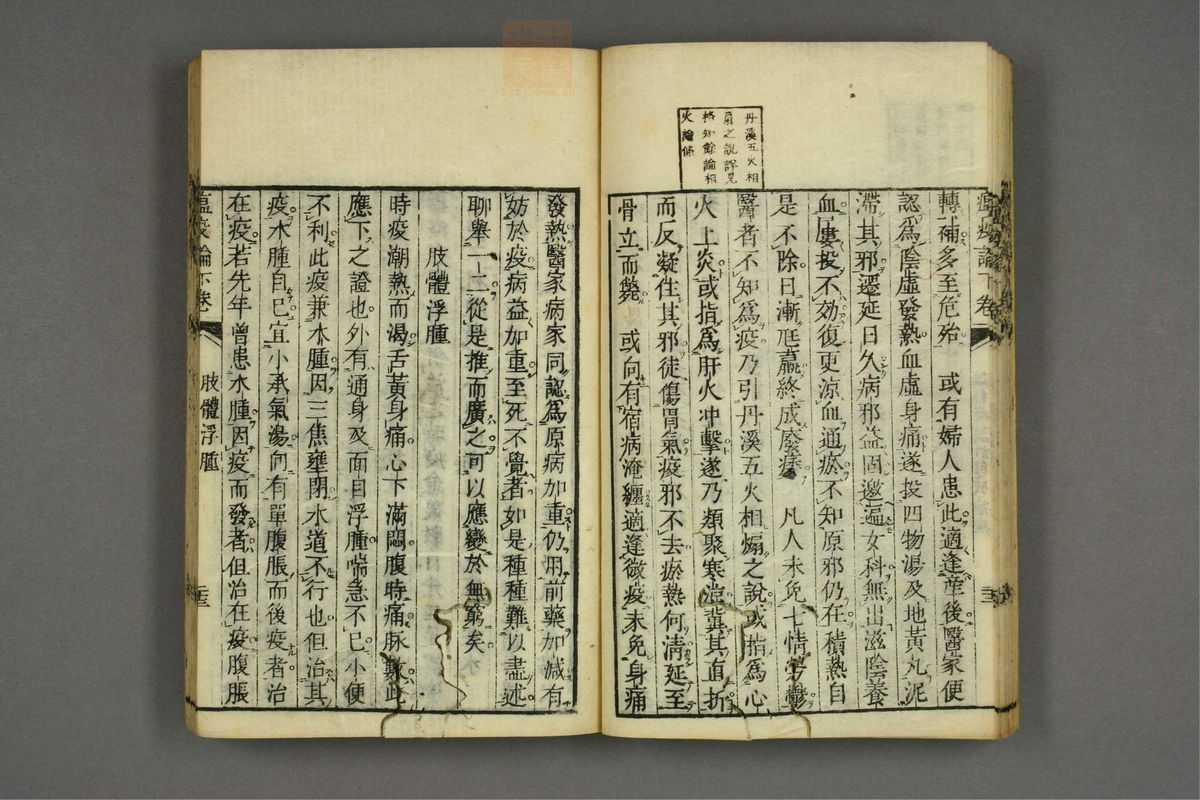 丹溪五火相
扇之說詳見
格知餘論相
火論條
瘟疫論下卷
轉補多至危殆　或有婦人患此適逢產後醫家便
認爲陰虛發熱血虛身痛遂投四物湯及地黃丸泥
滯其邪遷延日久病邪益固邀遍女科無出滋陰養
血屢投不効復更凉血通瘀不知原邪仍在積熱自
是不除日漸尫羸終成廢痿　凡人未免七情勞鬱
醫者不知爲疫乃引丹溪五火相煽之說或指爲心
火上炎或指爲肝火冲擊遂乃類聚寒凉冀其直折
而反凝住其邪徒傷胃氣疫邪不去瘀熱何淸延至
骨立而斃　或向有宿病淹纏適逢微疫未免身痛
發熱醫家病家同認爲原病加重仍用前藥加減有
妨於疫病益加重至死不覺者如是種種難以盡述
聊舉一二從是推而廣之可以應變於無窮矣
肢體浮腫
時疫潮熱而渴舌黃身痛心下滿悶腹時痛脉數此
應下之證也外有通身及面目浮腫喘急不已小便
不利此疫兼水腫因三焦壅閉水道不行也但治其
疫水腫自已宜小承氣湯向有單腹脹而後疫者治
在疫若先年曾患水腫因疫而發者但治在疫腹脹
瘟疫論下卷
肢體浮腫